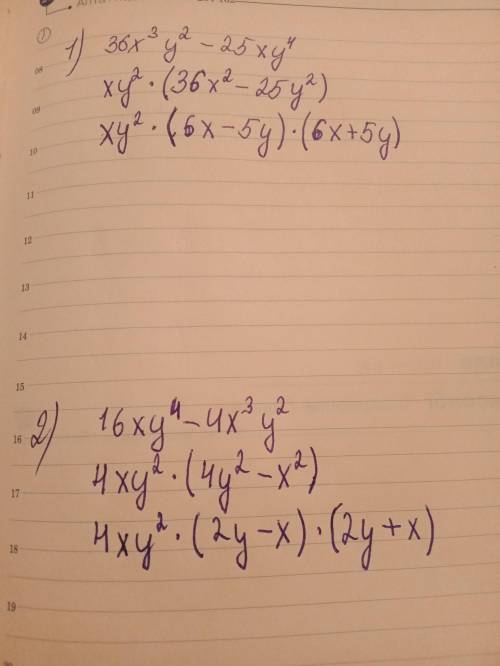 ①
1) 36x³y² - 25xy⁴
xy² · (36x² - 25y²)
xy² · (6x - 5y) · (6x + 5y)
08
09
10
11
12
13
14
15
2) 16xy⁴ - 4x³y²
16
4xy² · (4y² - x²)
17
4xy² · (2y - x) · (2y + x)
18
19